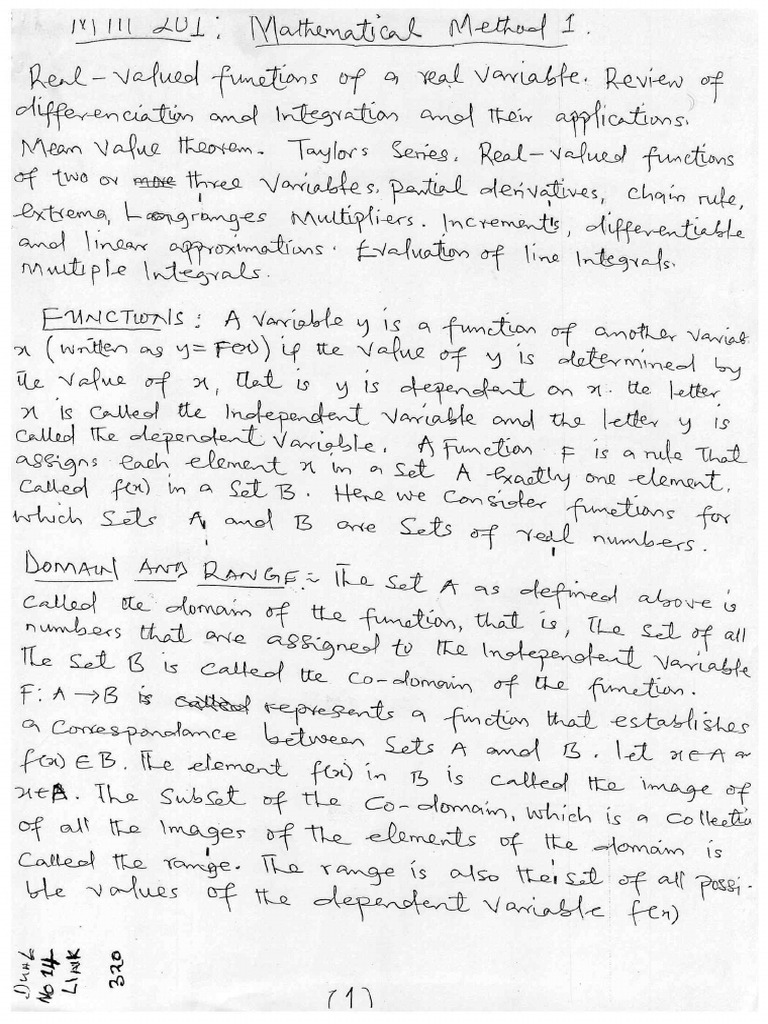 201: Mathematical Method 1.
Real-valued functions of a real variable. Review of
differenciation and Integration and their applications.
Mean value theorem. Taylors Series. Real-valued functions
of two or more three variables, partial derivatives, chain rule,
extrema, Langranges Multipliers. Increments, differentiable
and linear approximations. Evaluation of line Integrals.
Multiple Integrals.
FUNCTIONS: A variable y is a function of another variab
x (written as y=F(x)) if the value of y is determined by
the value of x, that is y is dependent on x. the letter
x is called the Independent variable and the letter y is
called the dependent variable. A Function F is a rule that
assigns each element x in a set A exactly one element,
called f(x) in a set B. Here we consider functions for
which sets A and B are sets of real numbers.
DOMAIN AND RANGE:- The set A as defined above is
called the domain of the function, that is, the set of all
numbers that are assigned to the Independent variable
The set B is called the co-domain of the function.
F: A→B is called represents a function that establishes
a correspondance between sets A and B. let x∈A
f(x)∈B. The element f(x) in B is called the image of
x∈A. The subset of the Co-domain, which is a collectio
of all the Images of the elements of the domain is
called the range. The range is also the set of all possi-
ble values of the dependent variable f(x)
No 14
LINK
320
(1)